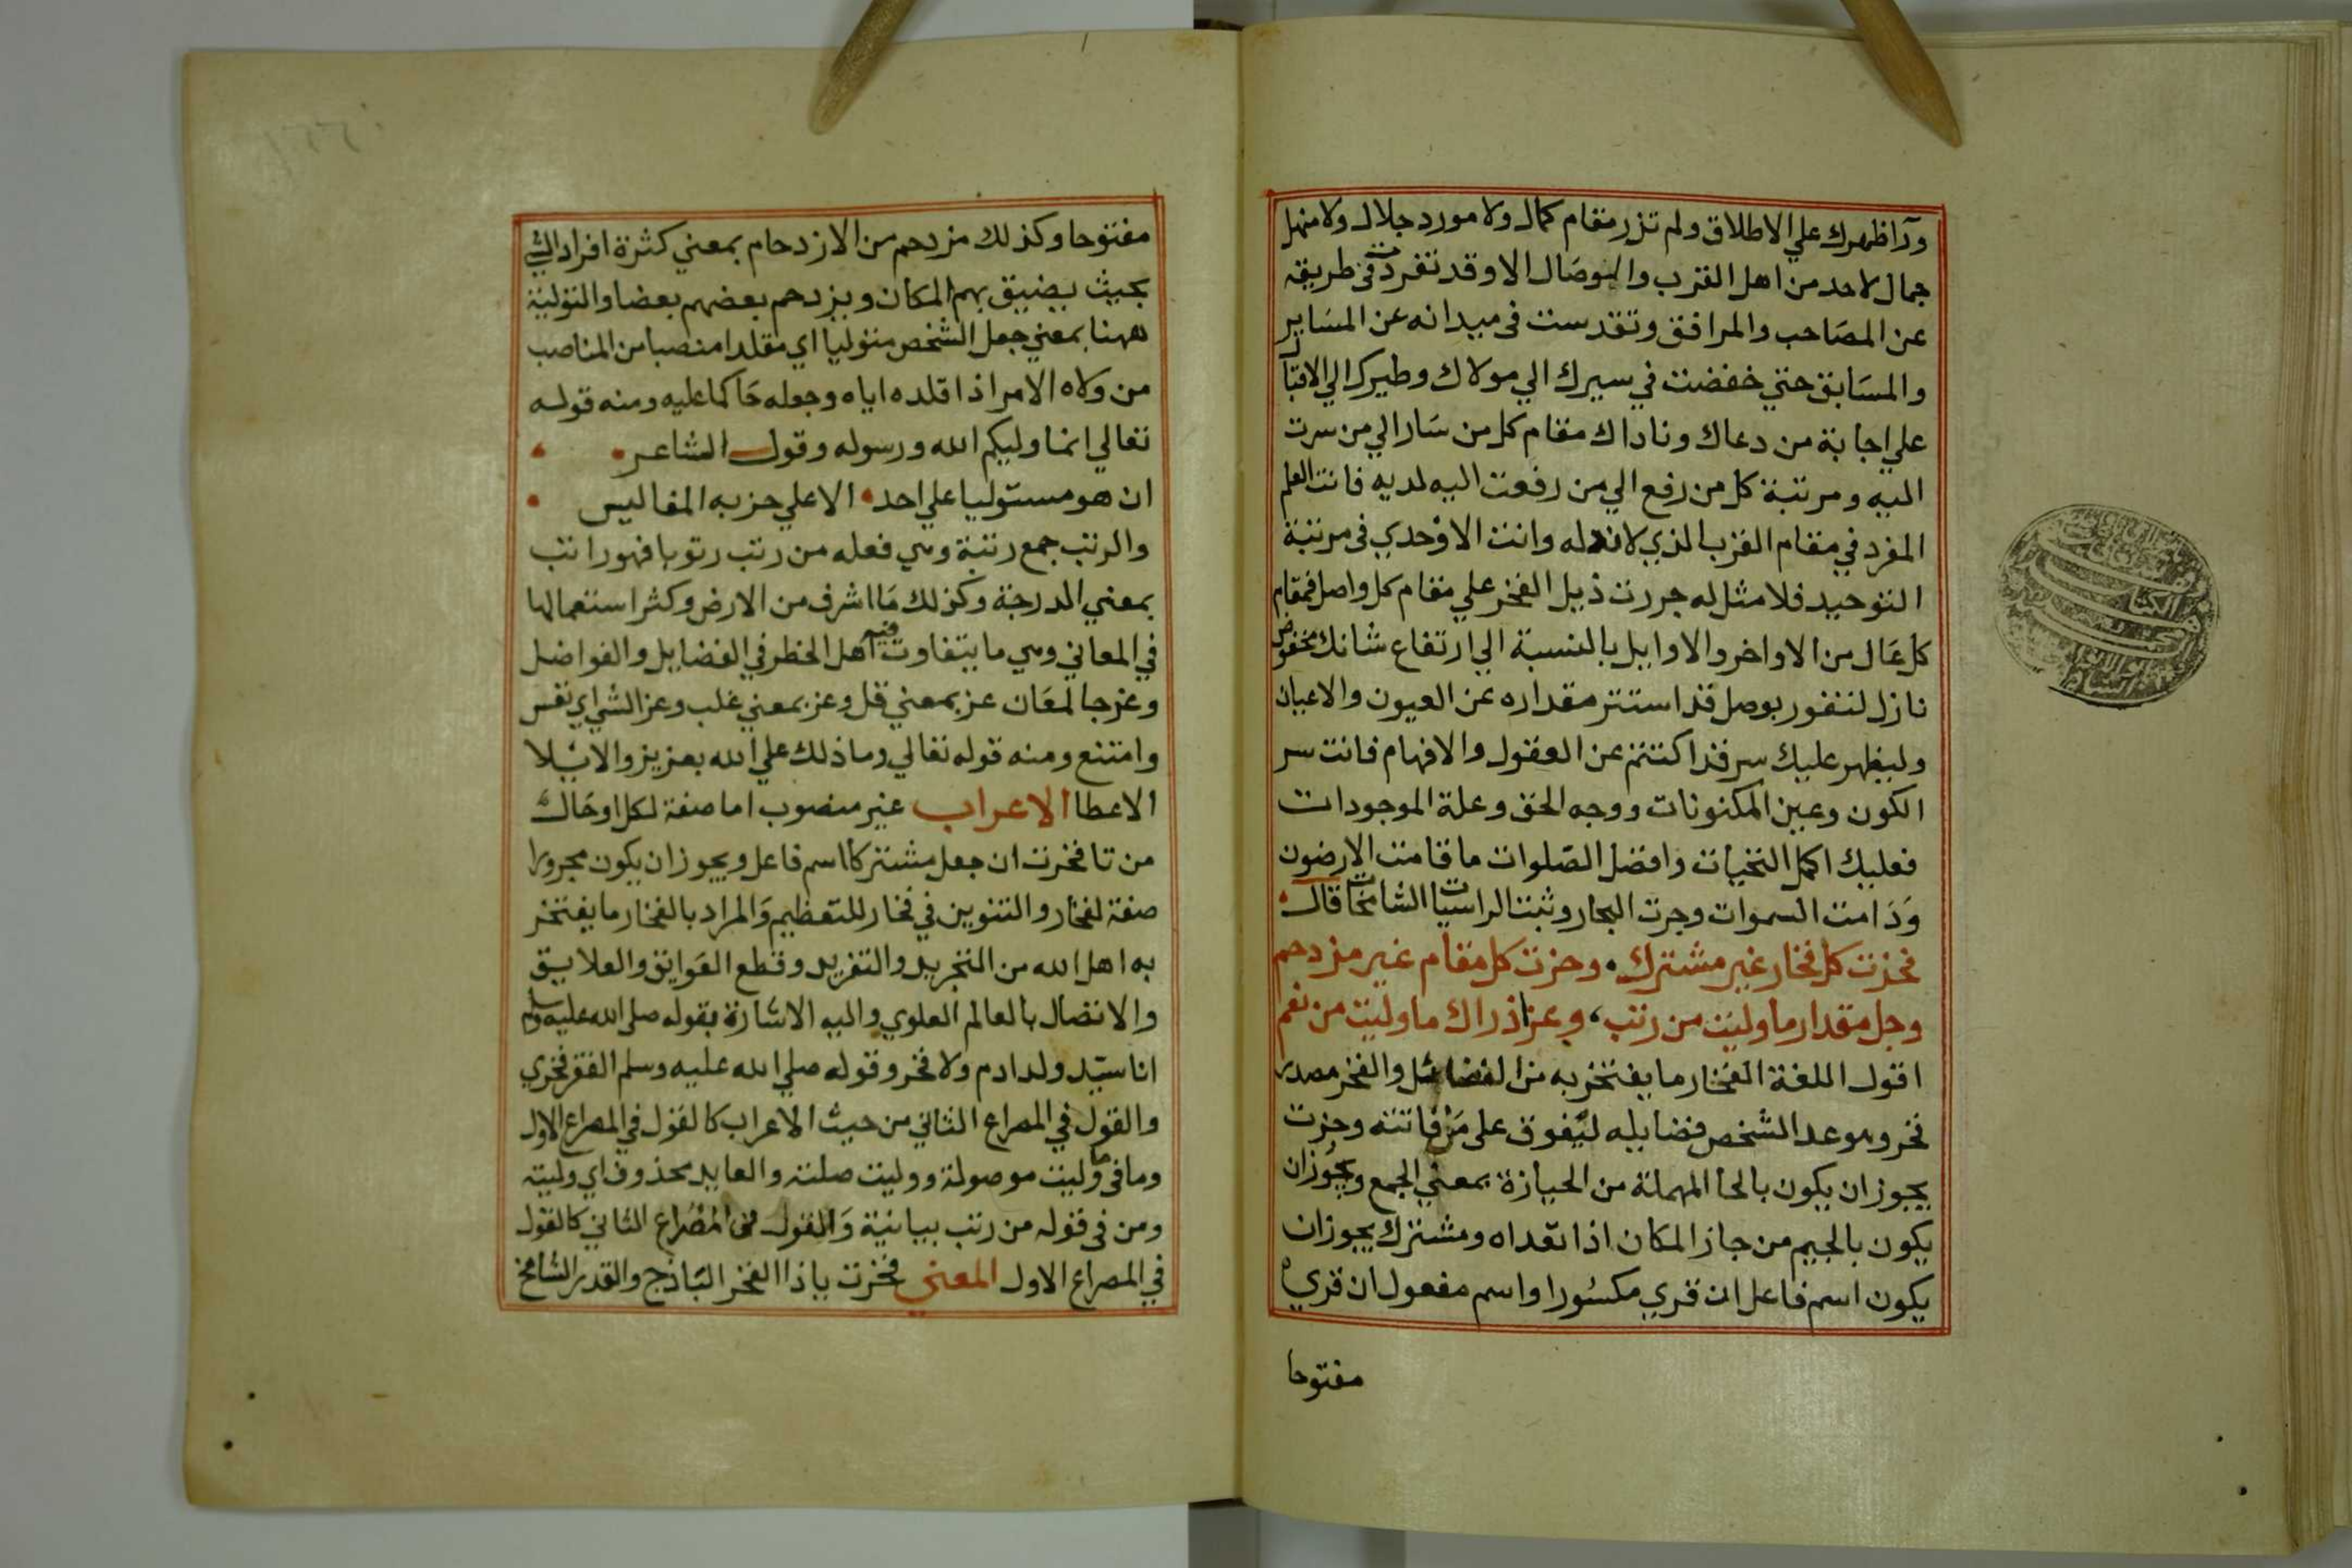 ورآ ظهرك علي الاطلاق ولم تزر مقام كمال ولا مورد جلال ولا منهل
جمال لاحد من اهل القرب والوصال الا وقد تفردت في طريقه
عن المصاحب والمرافق وتقدست في ميدانه عن المساير
والمسابق حتي خفضت في سيرك الي مولاك وطيرك الي الاقبال
علي اجابة من دعاك وناداك مقام كل من سار الي من سرت
اليه ومرتبة كل من رفع الي من رفعت اليه لديه فانت العلم
المفرد في مقام القرب الذي لا ند له وانت الاوحدي في مرتبة
التوحيد فلا مثل له جررت ذيل الفخر علي مقام كل واصل فمقام
كل عال من الاواخر والاوايل بالنسبة الي ارتفاع شانك مخفوض
نازل لتفوز بوصل قد استتر مقداره عن العيون والاعيان
وليظهر عليك سر قد اكتتم عن العقول والافهام فانت سر
الكون وعين المكنونات ووجه الحق وعلة الموجودات
فعليك اكمل التحيات وافضل الصلوات ما قامت الارضون
ودامت السموات وجرت البحار وثبت الراسيات الشامخات قال
فحزت كل فخار غير مشترك وجزت كل مقام غير مزدحم
وجل مقدار ما وليت من رتب، وعز ادراك ما وليت من نعم
اقول اللغة الفخار ما يفتخر به من الفضائل والفخر مصدر
فخر وهو عد الشخص فضايله ليفوق على من فاتته وحزت
يجوز ان يكون بالحا المهملة من الحيازة بمعني الجمع ويجوز ان
يكون بالجيم من جاز المكان اذا تعداه ومشترك يجوز ان
يكون اسم فاعل ان قري مكسورا واسم مفعول ان قري
مفتوحا
مفتوحا وكذلك مزدحم من الازدحام بمعني كثرة افراد الشي
بحيث يضيق بهم المكان ويزدحم بعضهم بعضا والتولية
ههنا بمعني جعل الشخص متوليا اي مقلدا منصبا من المناصب
من ولاه الامر اذا قلده اياه وجعله حاكما عليه ومنه قوله
تعالي انما وليكم الله ورسوله وقول الشاعر
ان هو مستوليا علي احد الا علي حزبه المفاليس
والرتب جمع رتبة وهي فعله من رتب رتوبا فهو راتب
بمعني المدرجة وكذلك ما اشرف من الارض وكثر استعمالها
في المعاني وهي ما يتفاوت فيه اهل الخطر في الفضايل والفواضل
وعز جا لمعان عز بمعني قل وعز بمعني غلب وعز الشي اي نفس
وامتنع ومنه قوله تعالي وما ذلك علي الله بعزيز والايلا
الاعطا الاعراب غير منصوب اما صفة لكل او حال
من تا فحزت ان جعل مشتركا اسم فاعل ويجوز ان يكون مجرورا
صفة لفخار والتنوين في فخار للتعظيم والمراد بالفخار ما يفتخر
به اهل الله من التجريد والتفريد وقطع العوايق والعلايق
والاتصال بالعالم العلوي واليه الاشارة بقوله صلي الله عليه وسلم
انا سيد ولد ادم ولا فخر وقوله صلي الله عليه وسلم الفقر فخري
والقول في المصراع الثاني من حيث الاعراب كالقول في المصراع الاول
وما في ما وليت موصولة ووليت صلته والعايد محذوف اي وليته
ومن في قوله من رتب بيانية والقول في المصراع الثاني كالقول
في المصراع الاول المعني فحزت يا ذا الفخر الباذخ والقدر الشامخ